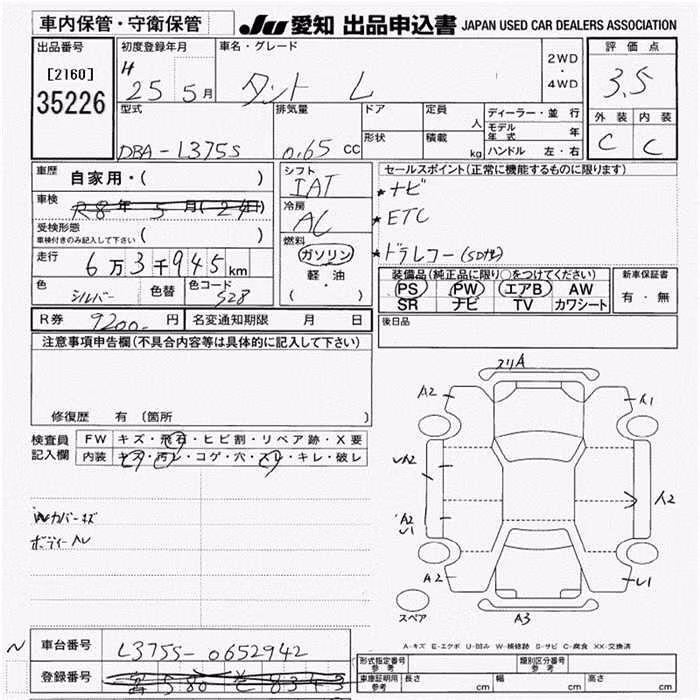 車内保管・守衛保管
JU 愛知 出品申込書 JAPAN USED CAR DEALERS ASSOCIATION
出品番号
[2160]
35226
初度登録年月
H 25 5月
車名・グレード
タント L
2WD
・
4WD
評価点
3.5
外装 内装
C C
型式
DBA-L375S
排気量
0.65 CC
ドア
形状
定員
人
積載
kg
ディーラー・並行
モデル年式 年
ハンドル 左・右
車歴
自家用・( )
車検
R8年 5月(24日)
受検形態
車検付きのみ記入して下さい ( )
走行
6万3千945km
色 シルバー 色替 色コード S28
シフト
IAT
冷房
AC
燃料
ガソリン
軽油
( ・ )
セールスポイント(正常に機能するものに限ります)
★ナビ
★ETC
★ドラレコー(SD付)
装備品(純正品に限り○をつけてください)
PS PW エアB AW
SR ナビ TV カワシート
新車保証書
有・無
R券 9200- 円 名変通知期限 月 日
後日品
注意事項申告欄(不具合内容等は具体的に記入して下さい)
修復歴 有 〔箇所 〕
検査員
記入欄
FW キズ・飛石・ヒビ割・リペア跡・X要
内装 キズ・汚レ・コゲ・穴・スレ・キレ・破レ
Wカバーキズ
ボディーAU
A2
A1
A2
A2
U1
A2
A2
U1
A3
スペア
A-キズ E-エクボ U-凹み W-補修跡 S-サビ C-腐食 XX-交換済
N
車台番号 L375S-0652942
登録番号
形式指定番号 参考
類別区分番号 参考
車庫証明用 参考 長さ cm 幅 cm 高さ cm